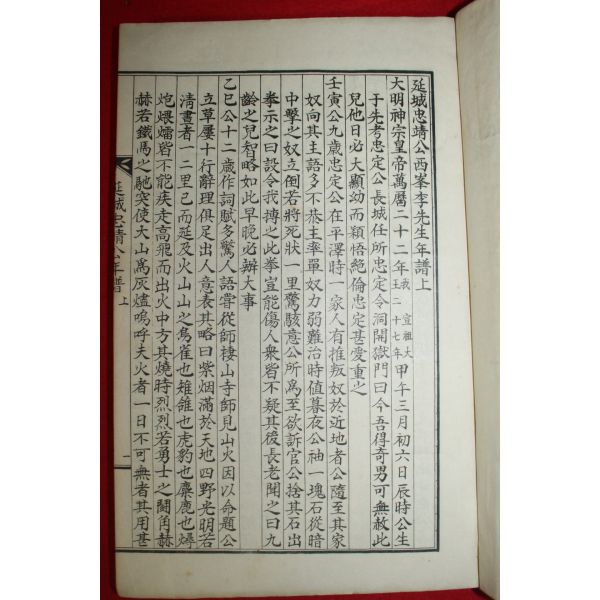 延城忠靖公西峯李先生年譜上
大明神宗皇帝萬曆二十二年我宣祖大王二十七年甲午三月初六日辰時公生
于先考忠定公長城任所忠定令洞開獄門曰今吾得奇男可無赦此
兒他日必大顯幼而穎悟絶倫忠定甚愛重之
壬寅公九歲忠定公在平澤時一家人有推叛奴於近地者公隨至其家
奴向其主語多不恭主率單奴力弱難治時値暮夜公袖一塊石從暗
中擊之奴立倒若將死狀一里驚駭意公所爲至欲訴官公捨其石出
拳示之曰設令我搏之此拳豈能傷人衆皆不疑其後長老聞之曰九
齡之兒智略如此早晩必辦大事
乙巳公十二歲作詞賦多驚人語嘗從師棲山寺師見山火因以命題公
立草屢十行辭理俱足出人意表其略曰紫烟滿於天地四野光明若
清晝者一二里已而延及火山山之鳥雀也雉雊也虎豹也麋鹿也燖
炮煨爊皆不能疾走高飛而出火中方其燒時烈烈若勇士之鬪角赫
赫若鐵馬之馳突使大山爲灰燼嗚呼夫火者一日不可無者其用甚
延城忠靖公年譜上
一